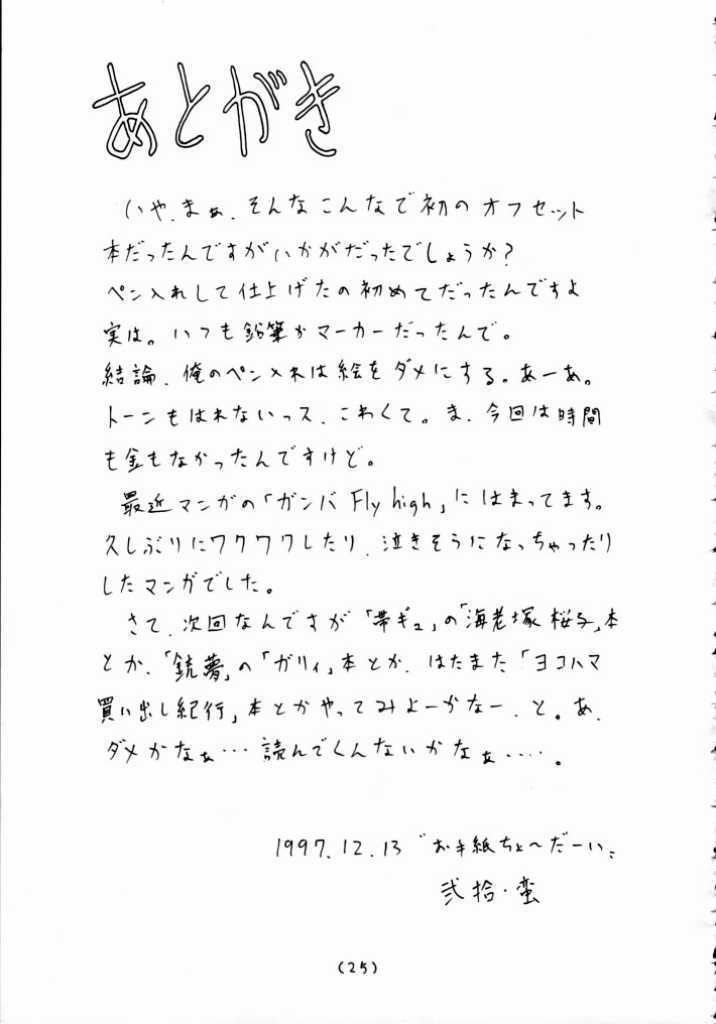 あとがき
いや、まぁ、そんなこんなで初のオフセット
本だったんですがいかがだったでしょうか?
ペン入れして仕上げたの初めてだったんですよ
実は。いつも鉛筆かマーカーだったんで。
結論、俺のペン入れは絵をダメにする。あーあ。
トーンもはれないっス、こわくて。ま、今回は時間
も金もなかったんですけど。
最近マンガの「ガンバ Fly high」にはまってます。
久しぶりにワクワクしたり、泣きそうになっちゃったり
したマンガでした。
さて、次回なんですが「帯ギュ」の「海老塚桜子」本
とか、「銃夢」の「ガリィ」本とか、はたまた「ヨコハマ
買い出し紀行」本とかやってみよーかなー、と。あ、
ダメかなぁ…読んでくんないかなぁ‥‥。
1997.12.13 “お手紙ちょ〜だーい„
弐拾・蛮
(25)